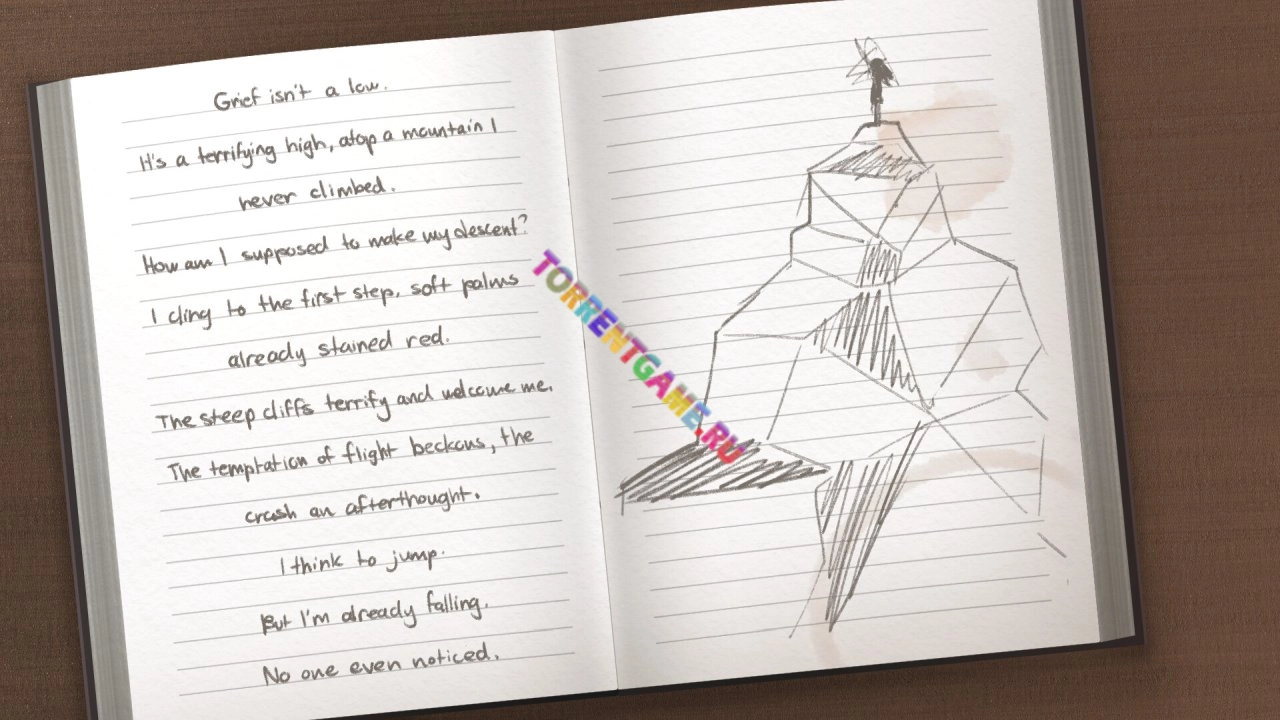 Grief isn't a low.
It's a terrifying high, atop a mountain I
never climbed.
How am I supposed to make my descent?
I cling to the first step, soft palms
already stained red.
The steep cliffs terrify and welcome me.
The temptation of flight beckons, the
crash an afterthought.
I think to jump.
But I'm already falling.
No one even noticed.
TORRENTGAME.RU